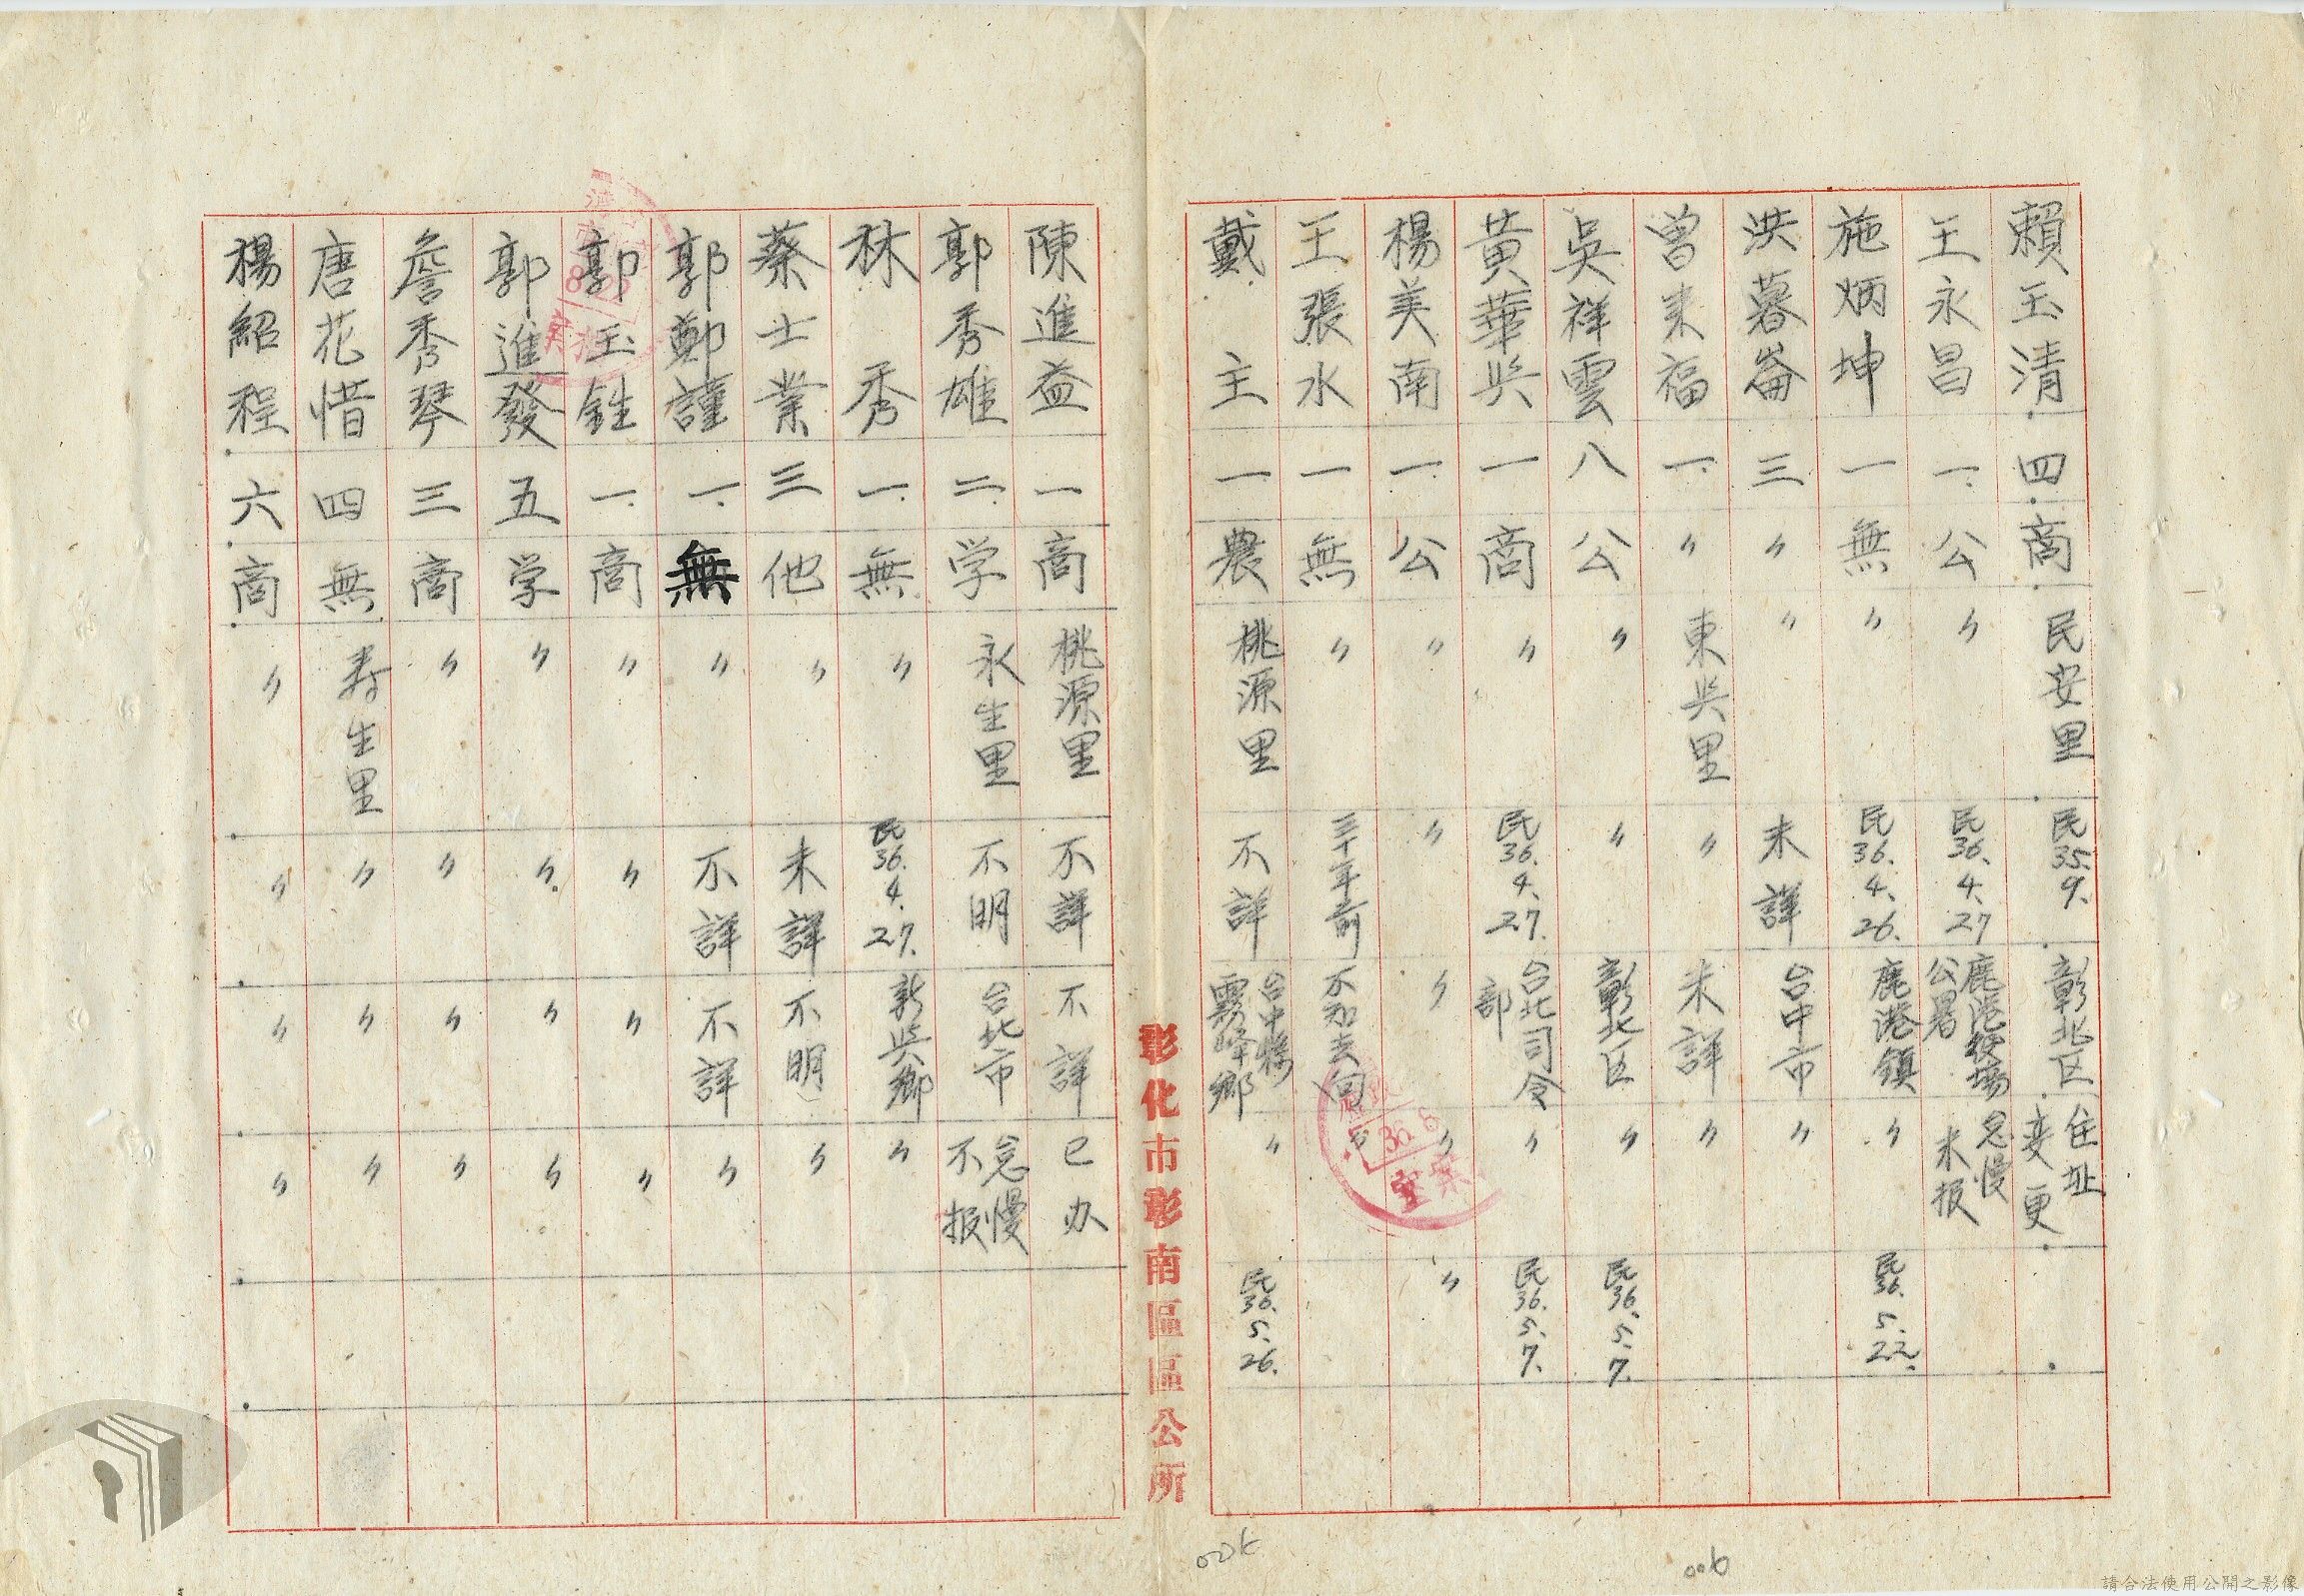 賴玉清 四 商 民安里 民35.9. 彰北区 住址変更
王永昌 一 公 〃 民36.4.27 鹿港糖場公署 怠慢未报
施炳坤 一 無 〃 民36.4.26. 鹿港鎮 〃 民36.5.22.
洪暮崙 三 〃 〃 未詳 台中市 〃
曾来福 一 〃 東兴里 〃 未詳 〃
吳祥雲 八 公 〃 〃 彰北区 〃 民36.5.7.
黃華兴 一 商 〃 民36.4.27. 台北司令部 〃 民36.5.7.
楊美南 一 公 〃 〃 〃 〃 〃
王張水 一 無 〃 三十年前 不知去向 〃
戴主 一 農 桃源里 不詳 台中縣霧峰鄉 〃 民36.5.26.
彰化市彰南區區公所
陳進益 一 商 桃源里 不詳 不詳 已办
郭秀雄 二 学 永生里 不明 台北市 怠慢不报
林秀 一 無 〃 民36.4.27. 新兴鄉 〃
蔡士業 三 他 〃 未詳 不明 〃
郭鄭謹 一 無 〃 不詳 不詳 〃
郭玉銓 一 商 〃 〃 〃 〃
郭進發 五 学 〃 〃 〃 〃
詹秀琴 三 商 〃 〃 〃 〃
唐花惜 四 無 寿生里 〃 〃 〃
楊紹程 六 商 〃 〃 〃 〃
006
請合法使用公開之影像